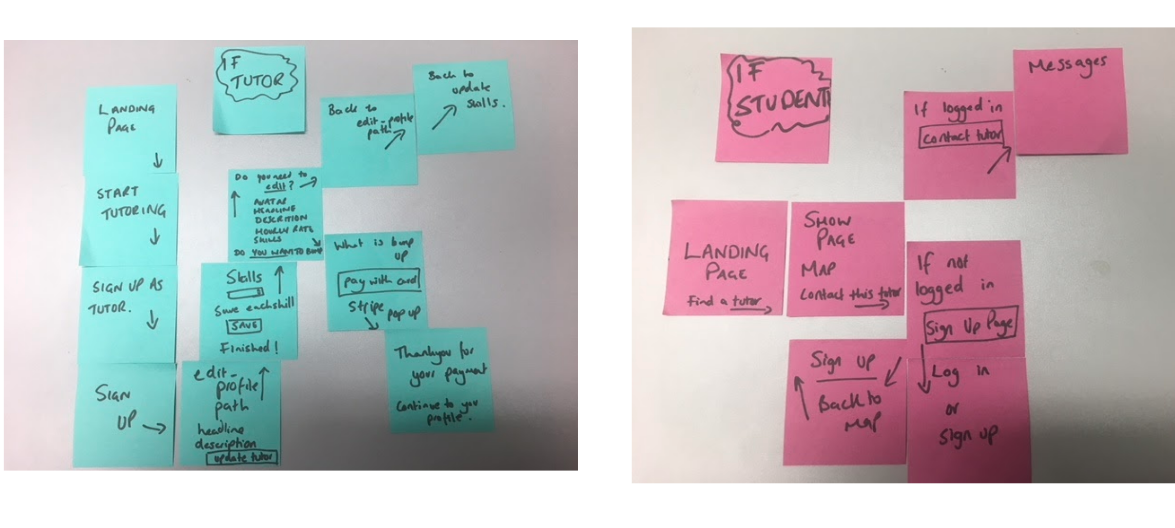 IF
TUTOR
LANDING
PAGE
START
TUTORING
SIGN UP AS
TUTOR.
SIGN
UP
edit-
profile
path
headline
description
update tutor
Skills
Save each skill
SAVE
Finished!
Do you need to
edit?
AVATAR
HEADLINE
DESCRITION
HOURLY RATE
SKILLS
DO YOU WANT TO BUMP
Back to
edit-profile
path
Back to
update
skills.
What is bump
UP
pay with card
Stripe pop up
Thankyou for
your payment
Continue to your
profile.
IF
STUDENT
LANDING
PAGE
Find a tutor
SHOW
PAGE
MAP
Contact this tutor
If logged in
contact tutor
Messages
If not
logged in
Sign Up Page
Log in
or
sign up
Sign up
Back to
map